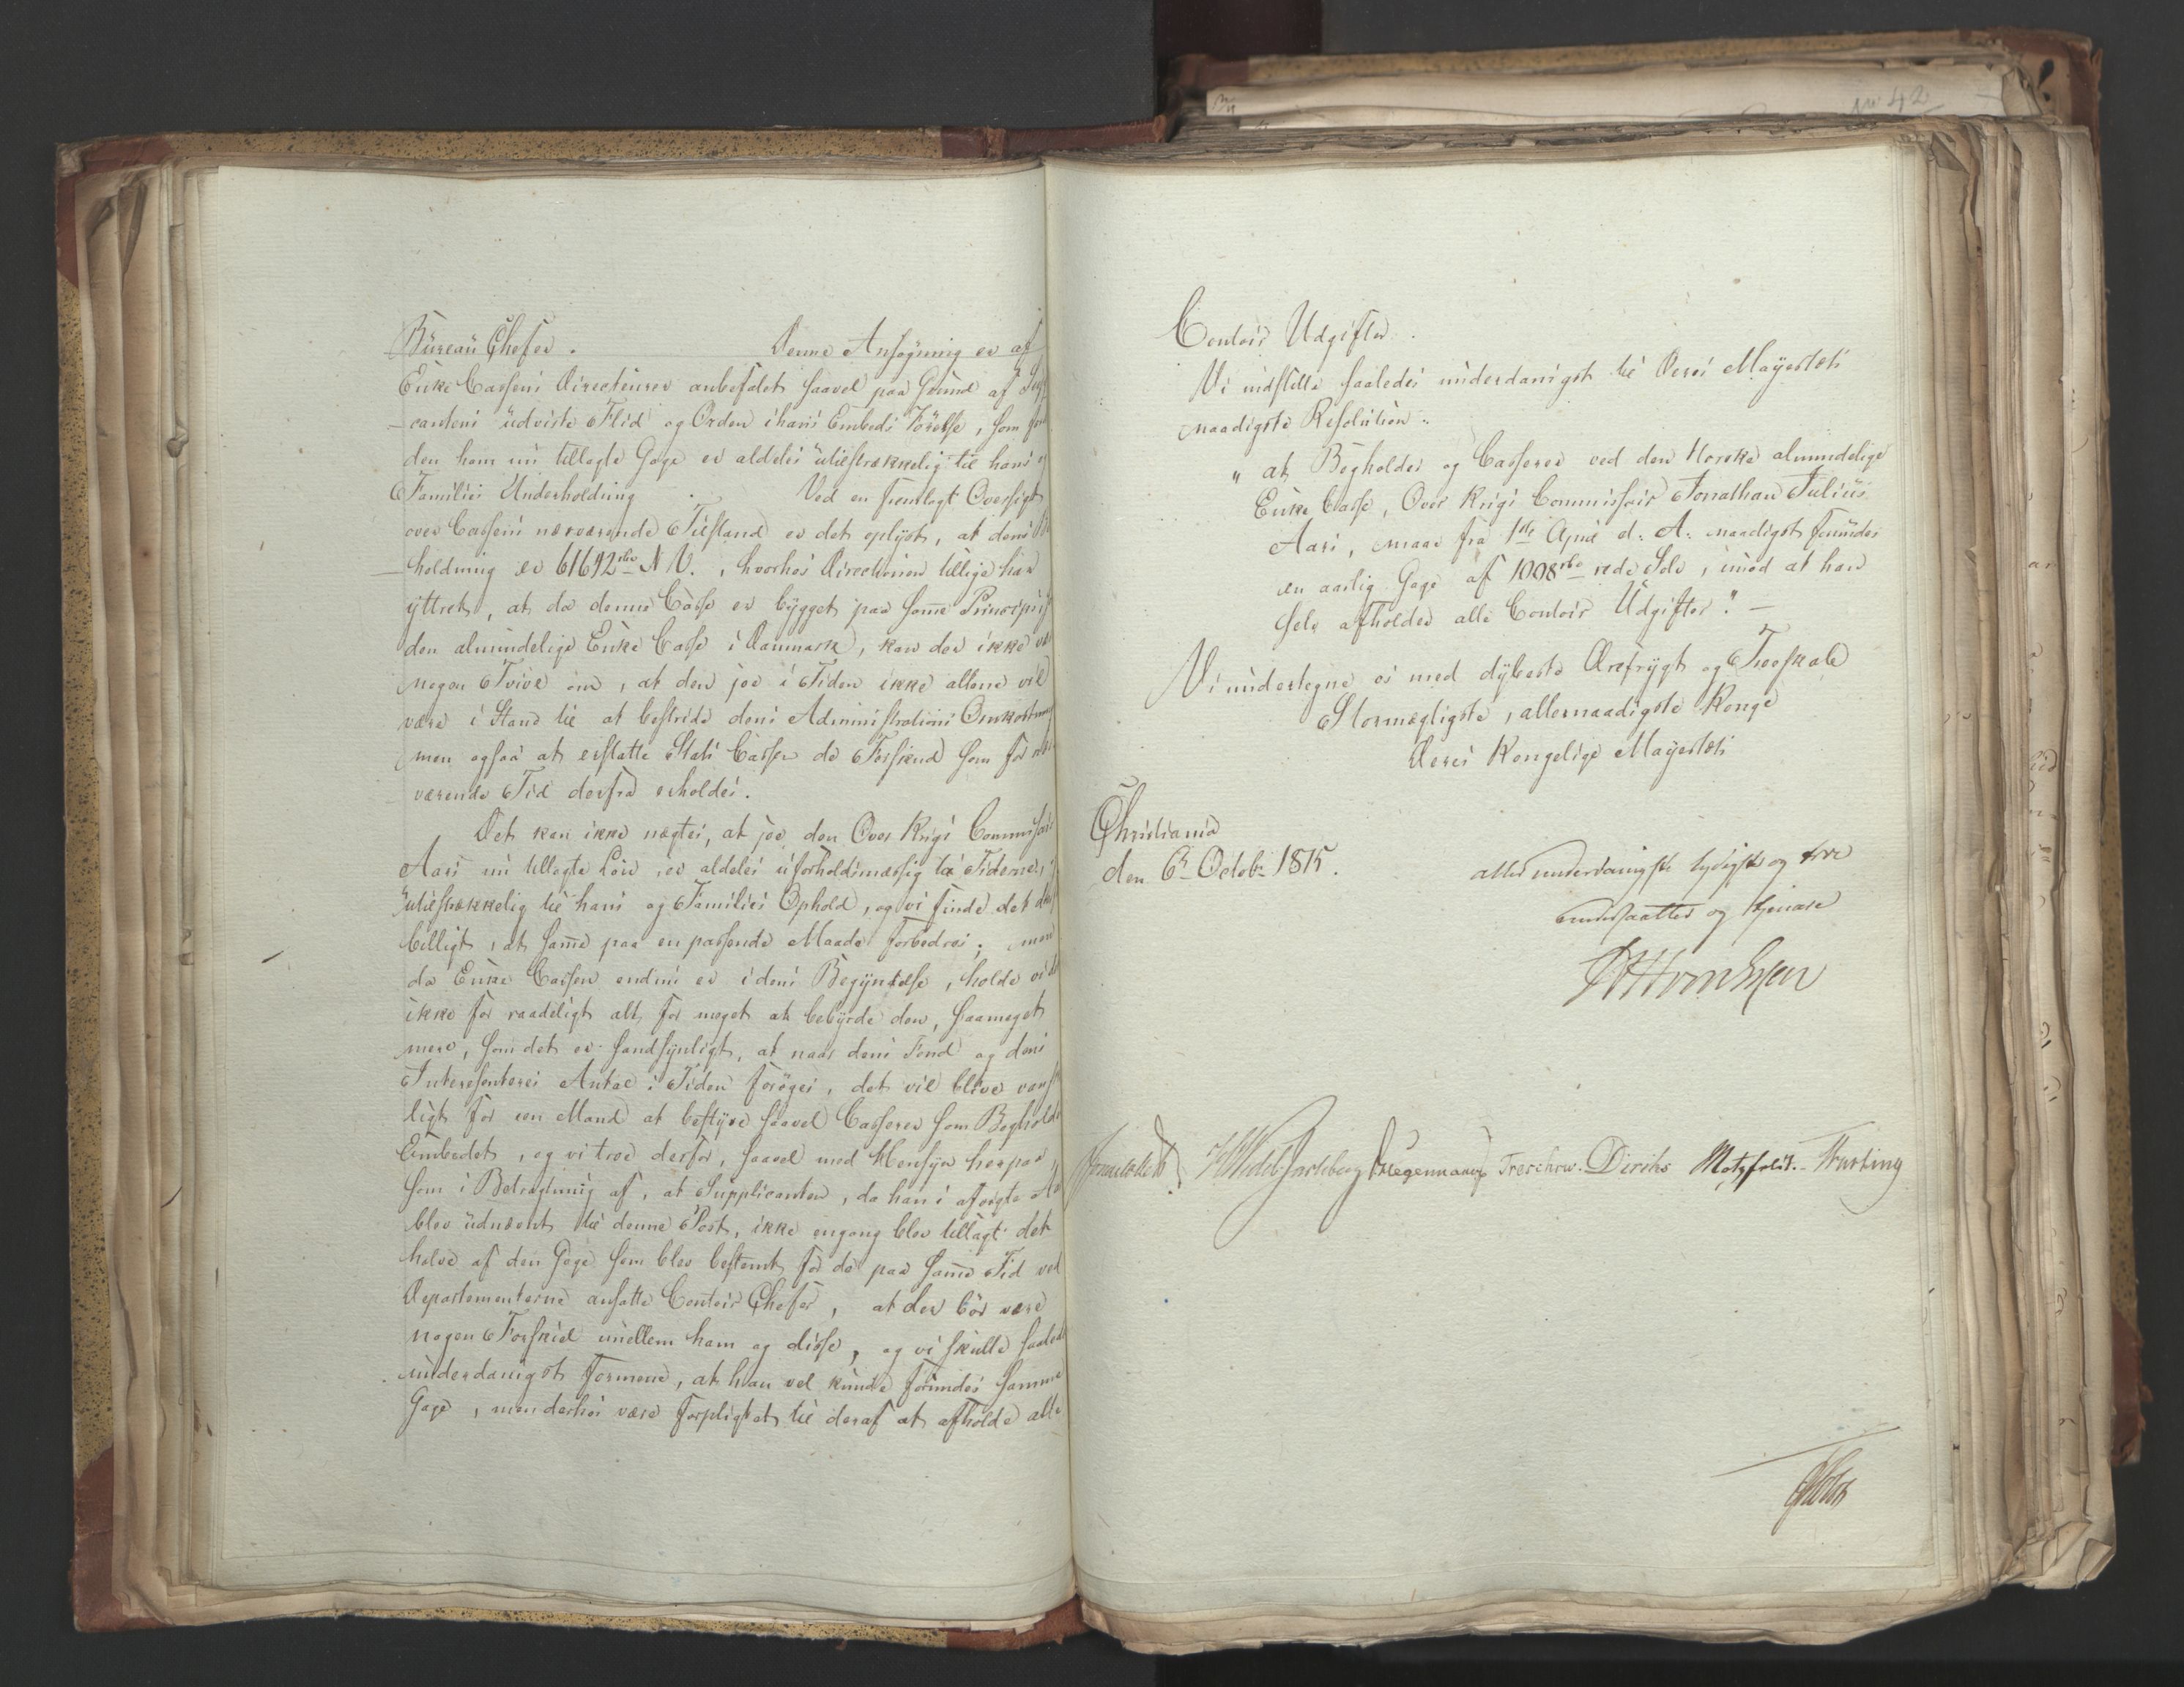 Bureau Chefer. Denne Ansøgning er af
Enke Cassens Directeurer anbefalet saavel paa Grund af
cantens udviste Flid og Orden i hans Embeds Førelse, som
den ham nu tillagte Gage er aldeles utilstrækkelig til hans
Families Underholdning. Ved en fremlagt Oversigt
over Cassens nærværende Tilstand er det oplyst, at dens
holdning er 61692 rbd N. V., hvorhos Directionen tillige har
yttret, at da denne Casse er bygget paa samme
den almindelige Enke Casse i Danmark, kan der ikke
nogen Tvivl om, at den jo i Tiden ikke allene vil
være i Stand til at bestride dens Administrations Omkostninger
men ogsaa at erstatte Stats Cassen de Forskud som for
værende Tid derfra erholdes.
Det kan ikke nægtes, at jo den Over Krigs Commissair
Aars nu tillagte Løn, er aldeles uforholdsmæssig til Tiderne,
utilstrækkelig til hans og Families Ophold, og vi finde det
billigt, at samme paa en passende Maade forbedres; men
da Enke Cassen endnu er i dens Begyndelse, holde vi det
ikke for raadeligt alt for meget at bebyrde den, saameget
mere, som det er sandsynligt, at naar dens Fond og dens
Interessenteres Antal i Tiden forøges, det vil blive vanske
ligt for een Mand at bestyre saavel Casserer som Bogholder
Embedet, og vi troe derfor, saavel med Hensyn herpaa,
som i Betragtning af, at Supplicanten, da han i afvigte
blev udnævnt til denne Post, ikke engang blev tillagt det
halve af den Gage som blev bestemt for de paa samme Tid ved
Departementerne ansatte Contoir Chefer, at der bør være
nogen Forskiel imellem ham og disse, og vi skulle saaledes
underdanigst formene, at han vel kunde forundes samme
Gage, men derhos være forpligtet til deraf at afholde alle
Contoir Udgifter.
Vi indstille saaledes underdanigst til Deres Majestæts
naadigste Resolution:
"at Bogholder og Casserer ved den Norske almindelige
Enke Casse, Over Krigs Commissair Jonathan Julius
Aars, maae fra 1ste April d: A: naadigst forundes
en aarlig Gage af 1008 rbd rede Sølv, imod at han
selv afholder alle Contoir Udgifter." —
Vi undertegne os med dybeste Ærefrygt og Troeskab
Stormægtigste, allernaadigste Konge
Deres Kongelige Mayestæts
Christiania
den 6te Octobr 1815.
allerunderdanigste lydigste og troe
undersaatter og tjenere
Wedel Jarlsberg Hegermann Treschow. Diriks Motzfeldt.